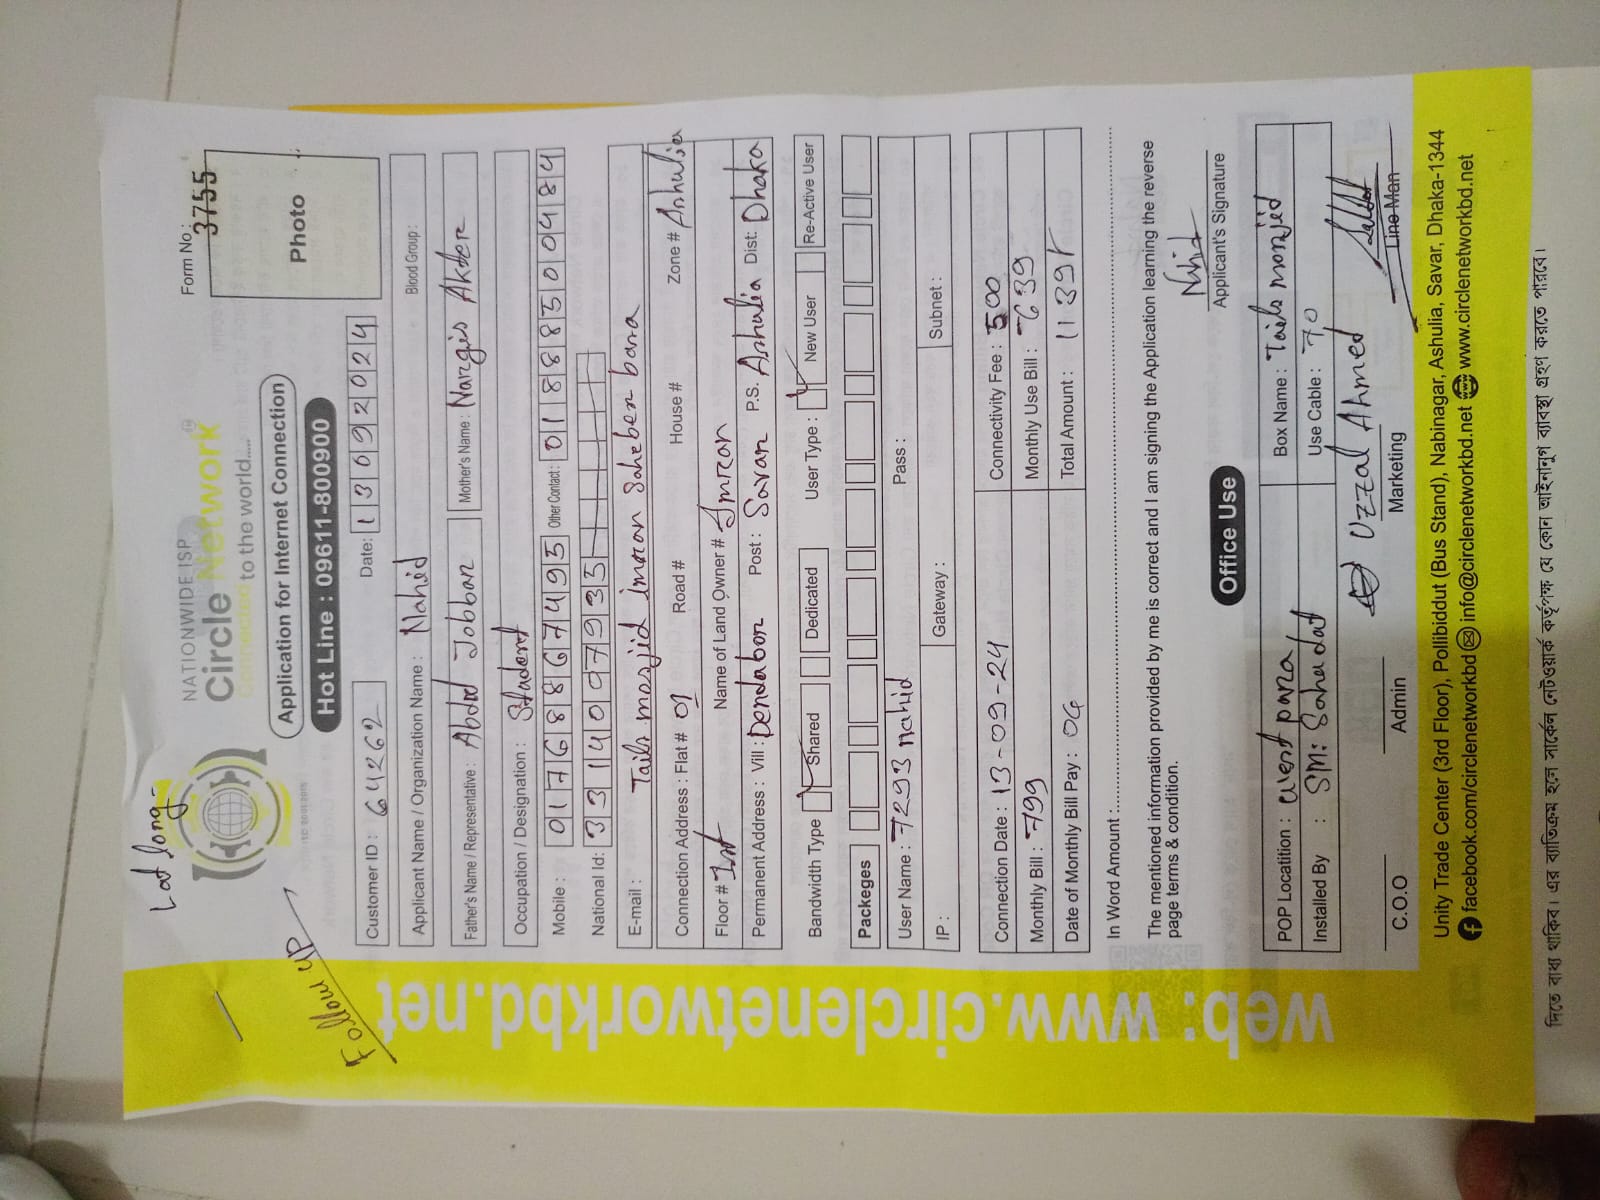 Lat long-
Follow UP
NATIONWIDE ISP
Circle Network
Connected to the world.....
Form No: 3755
Photo
Application for Internet Connection
Hot Line : 09611-800900
Customer ID : 64262 Date: 13092024
Applicant Name / Organization Name : Nahid Blood Group :
Father's Name / Representative : Abdul Jobbar Mother's Name : Nargis Akter
Occupation / Designation : Student
Mobile : 01768867495 Other Contact: 01888500484
National Id: 3314097935
E-mail : Tails mosjid imran Saheber bara
Connection Address : Flat # 01 Road # House # Zone # Ashulia
Floor # 1st Name of Land Owner # Imran
Permanent Address : Vill : Dendabor Post : Savar P.S. Ashulia Dist: Dhaka
Bandwidth Type Shared Dedicated User Type : New User Re-Active User
Packeges
User Name : 7293 nahid Pass :
IP : Gateway : Subnet :
Connection Date : 13-09-24 Connectivity Fee : 500
Monthly Bill : 799 Monthly Use Bill : 639
Date of Monthly Bill Pay : 06 Total Amount : 1139/
In Word Amount :
The mentioned information provided by me is correct and I am signing the Application learning the reverse
page terms & condition.
Nihid
Applicant's Signature
Office Use
POP Locatition : West para Box Name : Tails mosjid
Installed By : SM: Sahadat Use Cable : 70
Uzzal Ahmed
C.O.O Admin Marketing Line Man
Unity Trade Center (3rd Floor), Pollibiddut (Bus Stand), Nabinagar, Ashulia, Savar, Dhaka-1344
facebook.com/circlenetworkbd info@circlenetworkbd.net www.circlenetworkbd.net
web: www.circlenetworkbd.net
দিতে বাধ্য থাকিব। এর ব্যাতিক্রম হলে সার্কেল নেটওয়ার্ক কর্তৃপক্ষ যে কোন আইনানুগ ব্যাবস্থা গ্রহণ করতে পারবে।